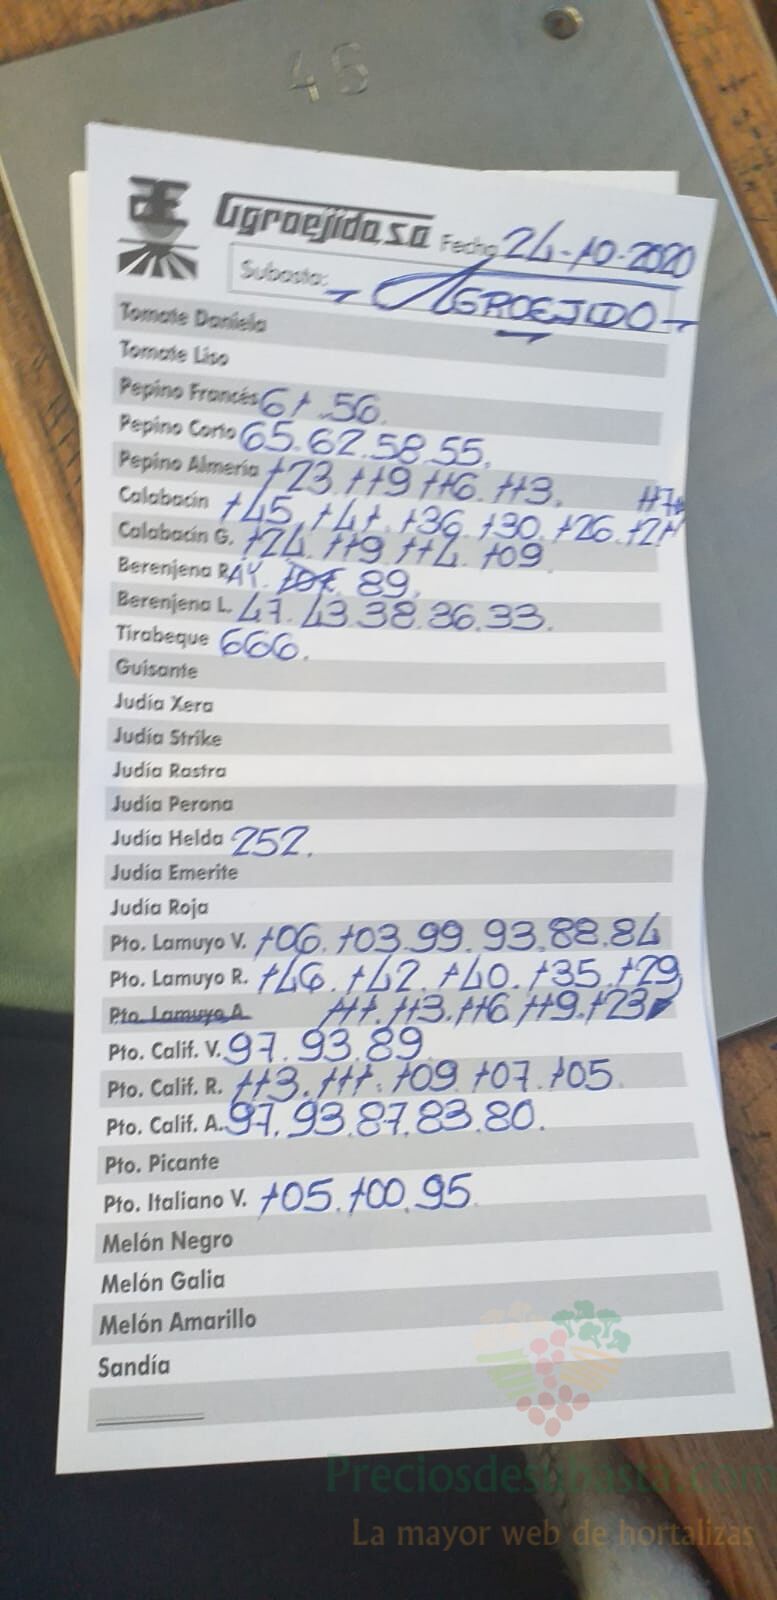 46
Agroejido, s.a. Fecha 24-10-2020
Subasta: - AGROEJIDO -
Tomate Daniela
Tomate Liso
Pepino Francés 61.56.
Pepino Corto 65.62.58.55.
Pepino Almería 123.119.116.113.
Calabacín 145.141.136.130.126.121 117
Calabacín G. 124.119.114.109
Berenjena RAY. 89.
Berenjena L. 47.43.38.36.33.
Tirabeque 666.
Guisante
Judía Xera
Judía Strike
Judía Rastra
Judía Perona
Judía Helda 252.
Judía Emerite
Judía Roja
Pto. Lamuyo V. 106.103.99.93.88.84
Pto. Lamuyo R. 146.142.140.135.129
Pto. Lamuyo A. 111.113.116.119.123
Pto. Calif. V. 97.93.89
Pto. Calif. R. 113.111.109.107.105
Pto. Calif. A. 97.93.87.83.80.
Pto. Picante
Pto. Italiano V. 105.100.95
Melón Negro
Melón Galia
Melón Amarillo
Sandía
Preciosdesubasta.com
La mayor web de hortalizas